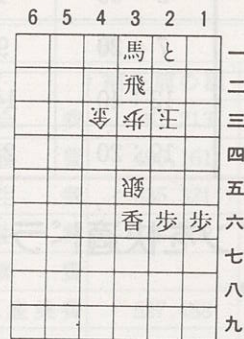 6 5 4 3 2 1
馬 と 一
飛 二
金 歩 玉 三
四
銀 五
香 歩 歩 六
七
八
九